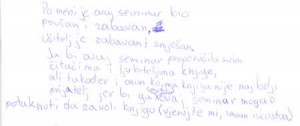 Po meni je ovaj seminar bio
poučan i zabavan.
Učitelj je zabavan i smješan.
Ja bi ovaj seminar preporučila svim
čitačima i ljubiteljima knjige,
ali također i onim kojima knjiga nije naj bolji
prijatelj jer bi ga ova, seminar mogao
potaknuti da zavoli knjigu (vjerujte mi, imam iskustva)